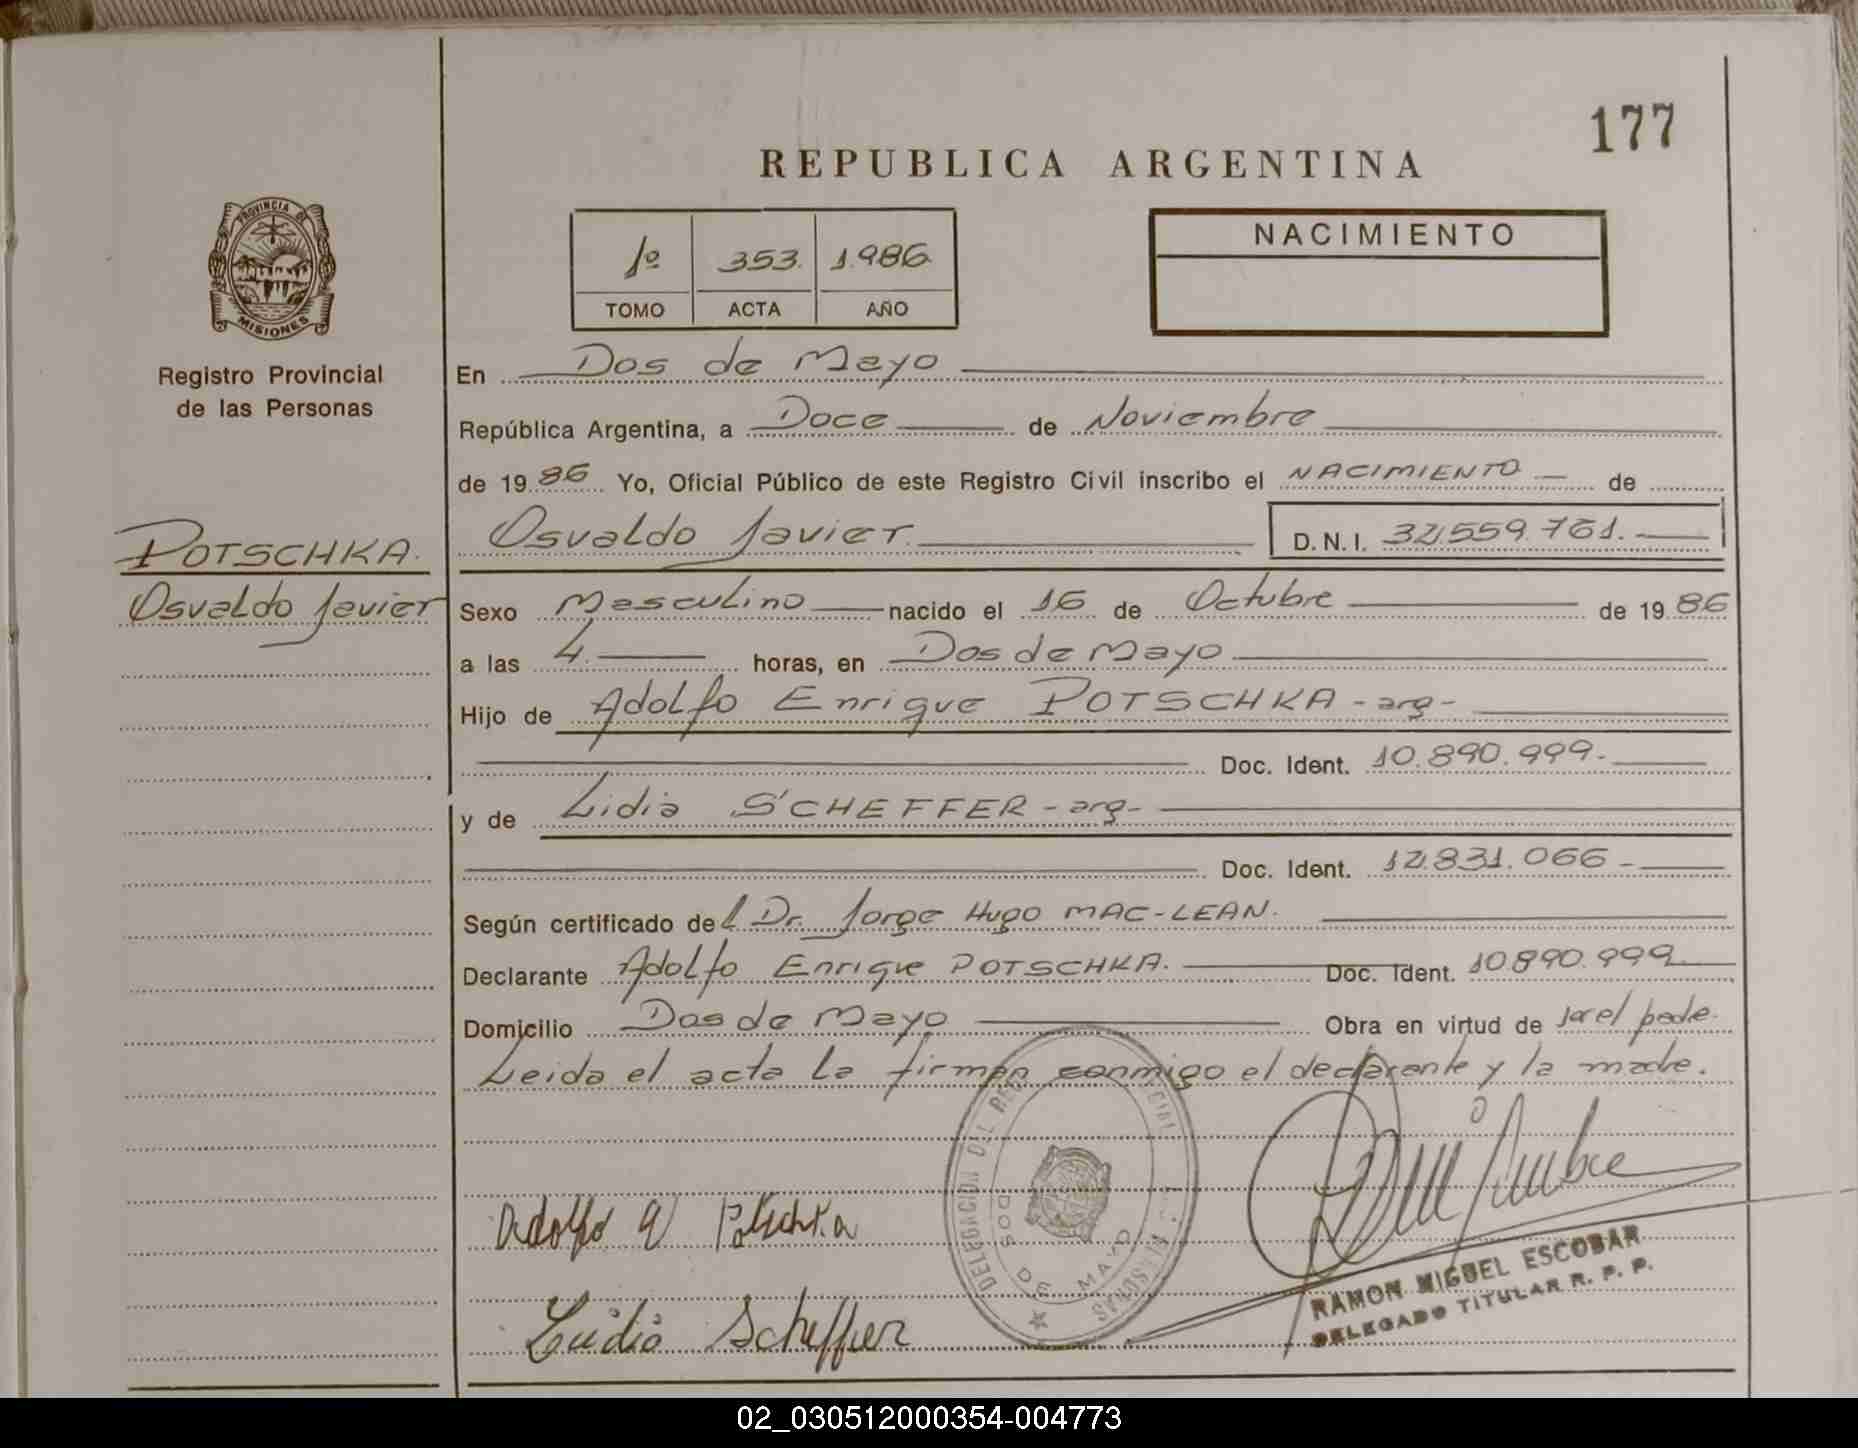 177
REPUBLICA ARGENTINA
1º 353. 1.986.
TOMO ACTA AÑO
NACIMIENTO
PROVINCIA DE
MISIONES
Registro Provincial
de las Personas
POTSCHKA.
Osvaldo Javier
En Dos de Mayo
República Argentina, a Doce de Noviembre
de 19 86 Yo, Oficial Público de este Registro Civil inscribo el NACIMIENTO — de
Osvaldo Javier. D.N.I. 32.559.761.
Sexo Masculino nacido el 16 de Octubre de 19 86
a las 4. horas, en Dos de Mayo
Hijo de Adolfo Enrique POTSCHKA - arg -
Doc. Ident. 10.890.999.
y de Lidia SCHEFFER - arg -
Doc. Ident. 12.831.066 -
Según certificado del Dr. Jorge Hugo MAC-LEAN.
Declarante Adolfo Enrique POTSCHKA. Doc. Ident. 10.890.999
Domicilio Dos de Mayo Obra en virtud de ser el padre.
Leida el acta la firman conmigo el declarante y la madre.
DELEGACION DEL
DOS DE MAYO
MISIONES
Adolfo E Potschka
Lidia Scheffer
RAMON MIGUEL ESCOBAR
DELEGADO TITULAR R. P. P.
02_030512000354-004773